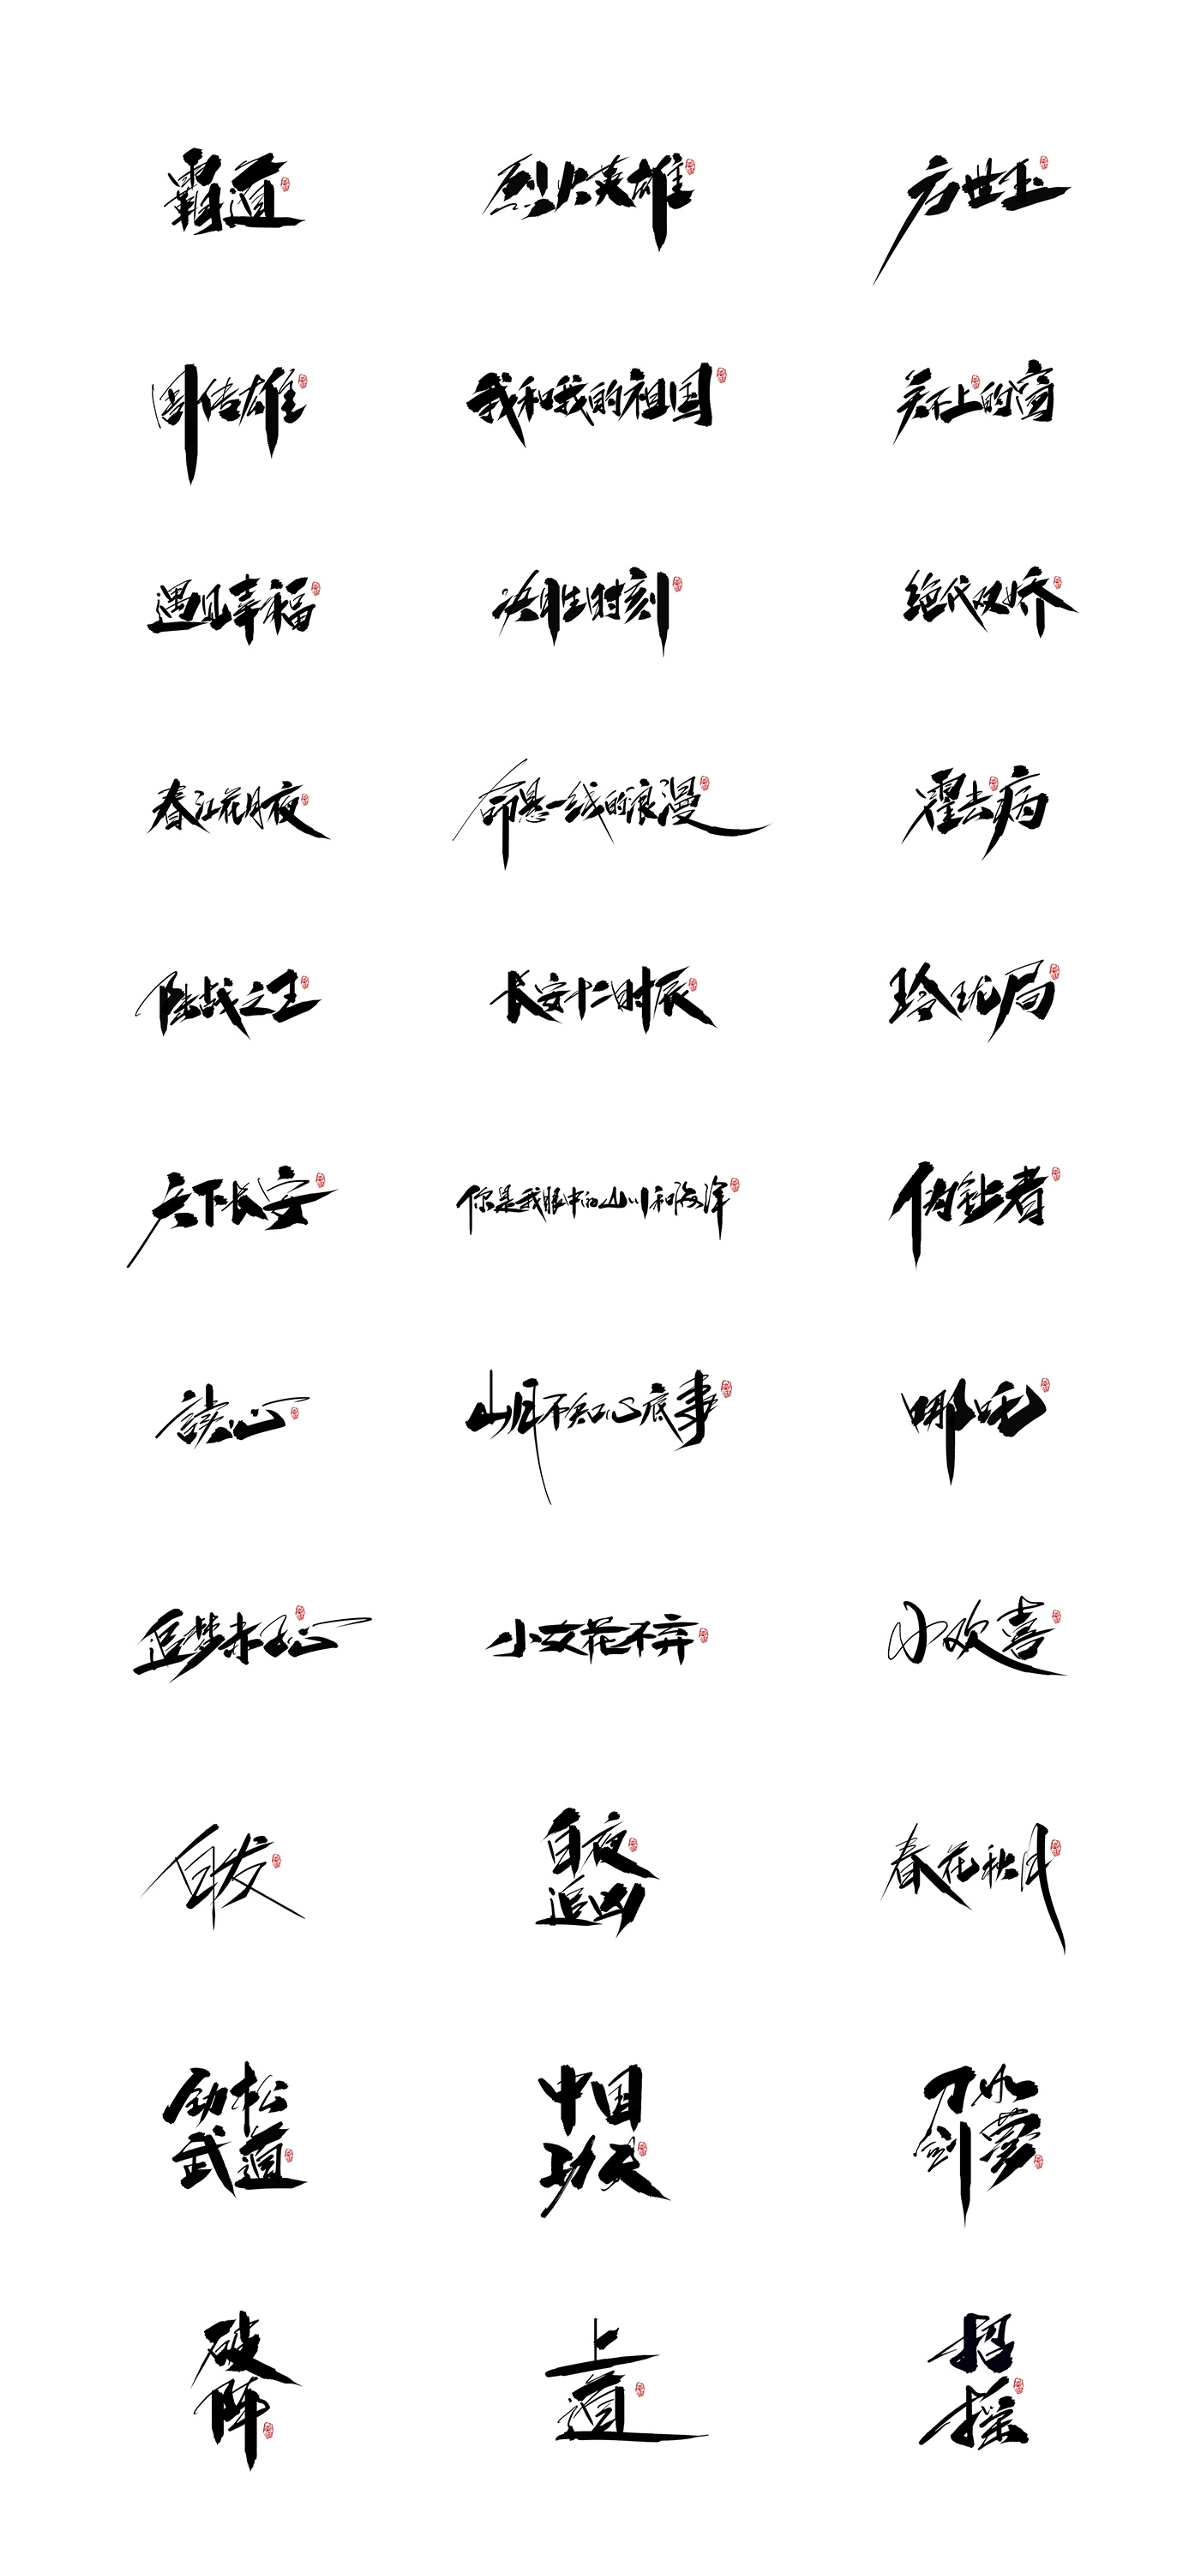 霸道
烈火英雄
方世玉
周佶雄
我和我的祖国
关不上的窗
遇见幸福
决胜时刻
绝代双娇
春江花月夜
命悬一线的浪漫
霍去病
陆战之王
长安十二时辰
玲珑局
天下长安
你是我眼中的山川和海洋
伪钞者
读心
山月不知心底事
哪吒
追梦赤子心
小女花不弃
小欢喜
白发
白夜
追凶
春花秋月
劲松
武道
中国
功夫
刀如
剑梦
破
阵
上
道
招
摇